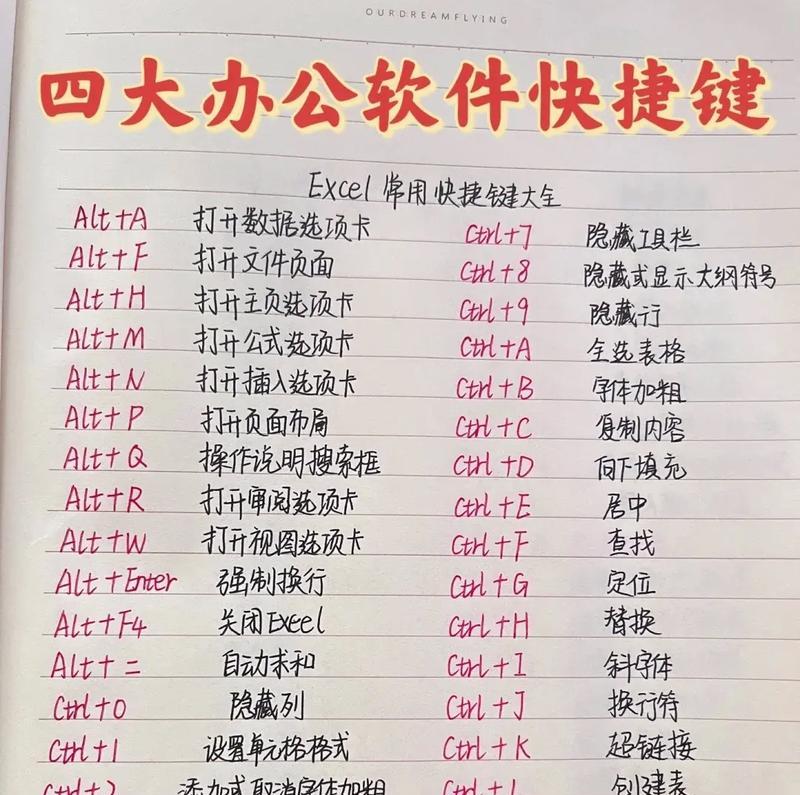 OURDREAMFLYING
四大办公软件快捷键
Excel 常用快捷键大全
Alt+A 打开数据选项卡
Alt+F 打开文件页面
Alt+H 打开主页选项卡
Alt+M 打开公式选项卡
Alt+N 打开插入选项卡
Alt+P 打开页面布局
Alt+Q 操作说明搜索框
Alt+R 打开审阅选项卡
Alt+W 打开视图选项卡
Alt+Enter 强制换行
Alt+F4 关闭Excel
Alt+= 自动求和
Ctrl+0 隐藏列
Ctrl+1 设置单元格格式
Ctrl+2 添加或取消字体加粗
Ctrl+7 隐藏工具栏
Ctrl+8 隐藏或显示大纲符号
Ctrl+9 隐藏行
Ctrl+A 全选表格
Ctrl+B 字体加粗
Ctrl+C 复制内容
Ctrl+D 向下填充
Ctrl+E 居中
Ctrl+F 查找
Ctrl+G 定位
Ctrl+H 替换
Ctrl+I 斜字体
Ctrl+J 换行符
Ctrl+K 超链接
Ctrl+L 创建表